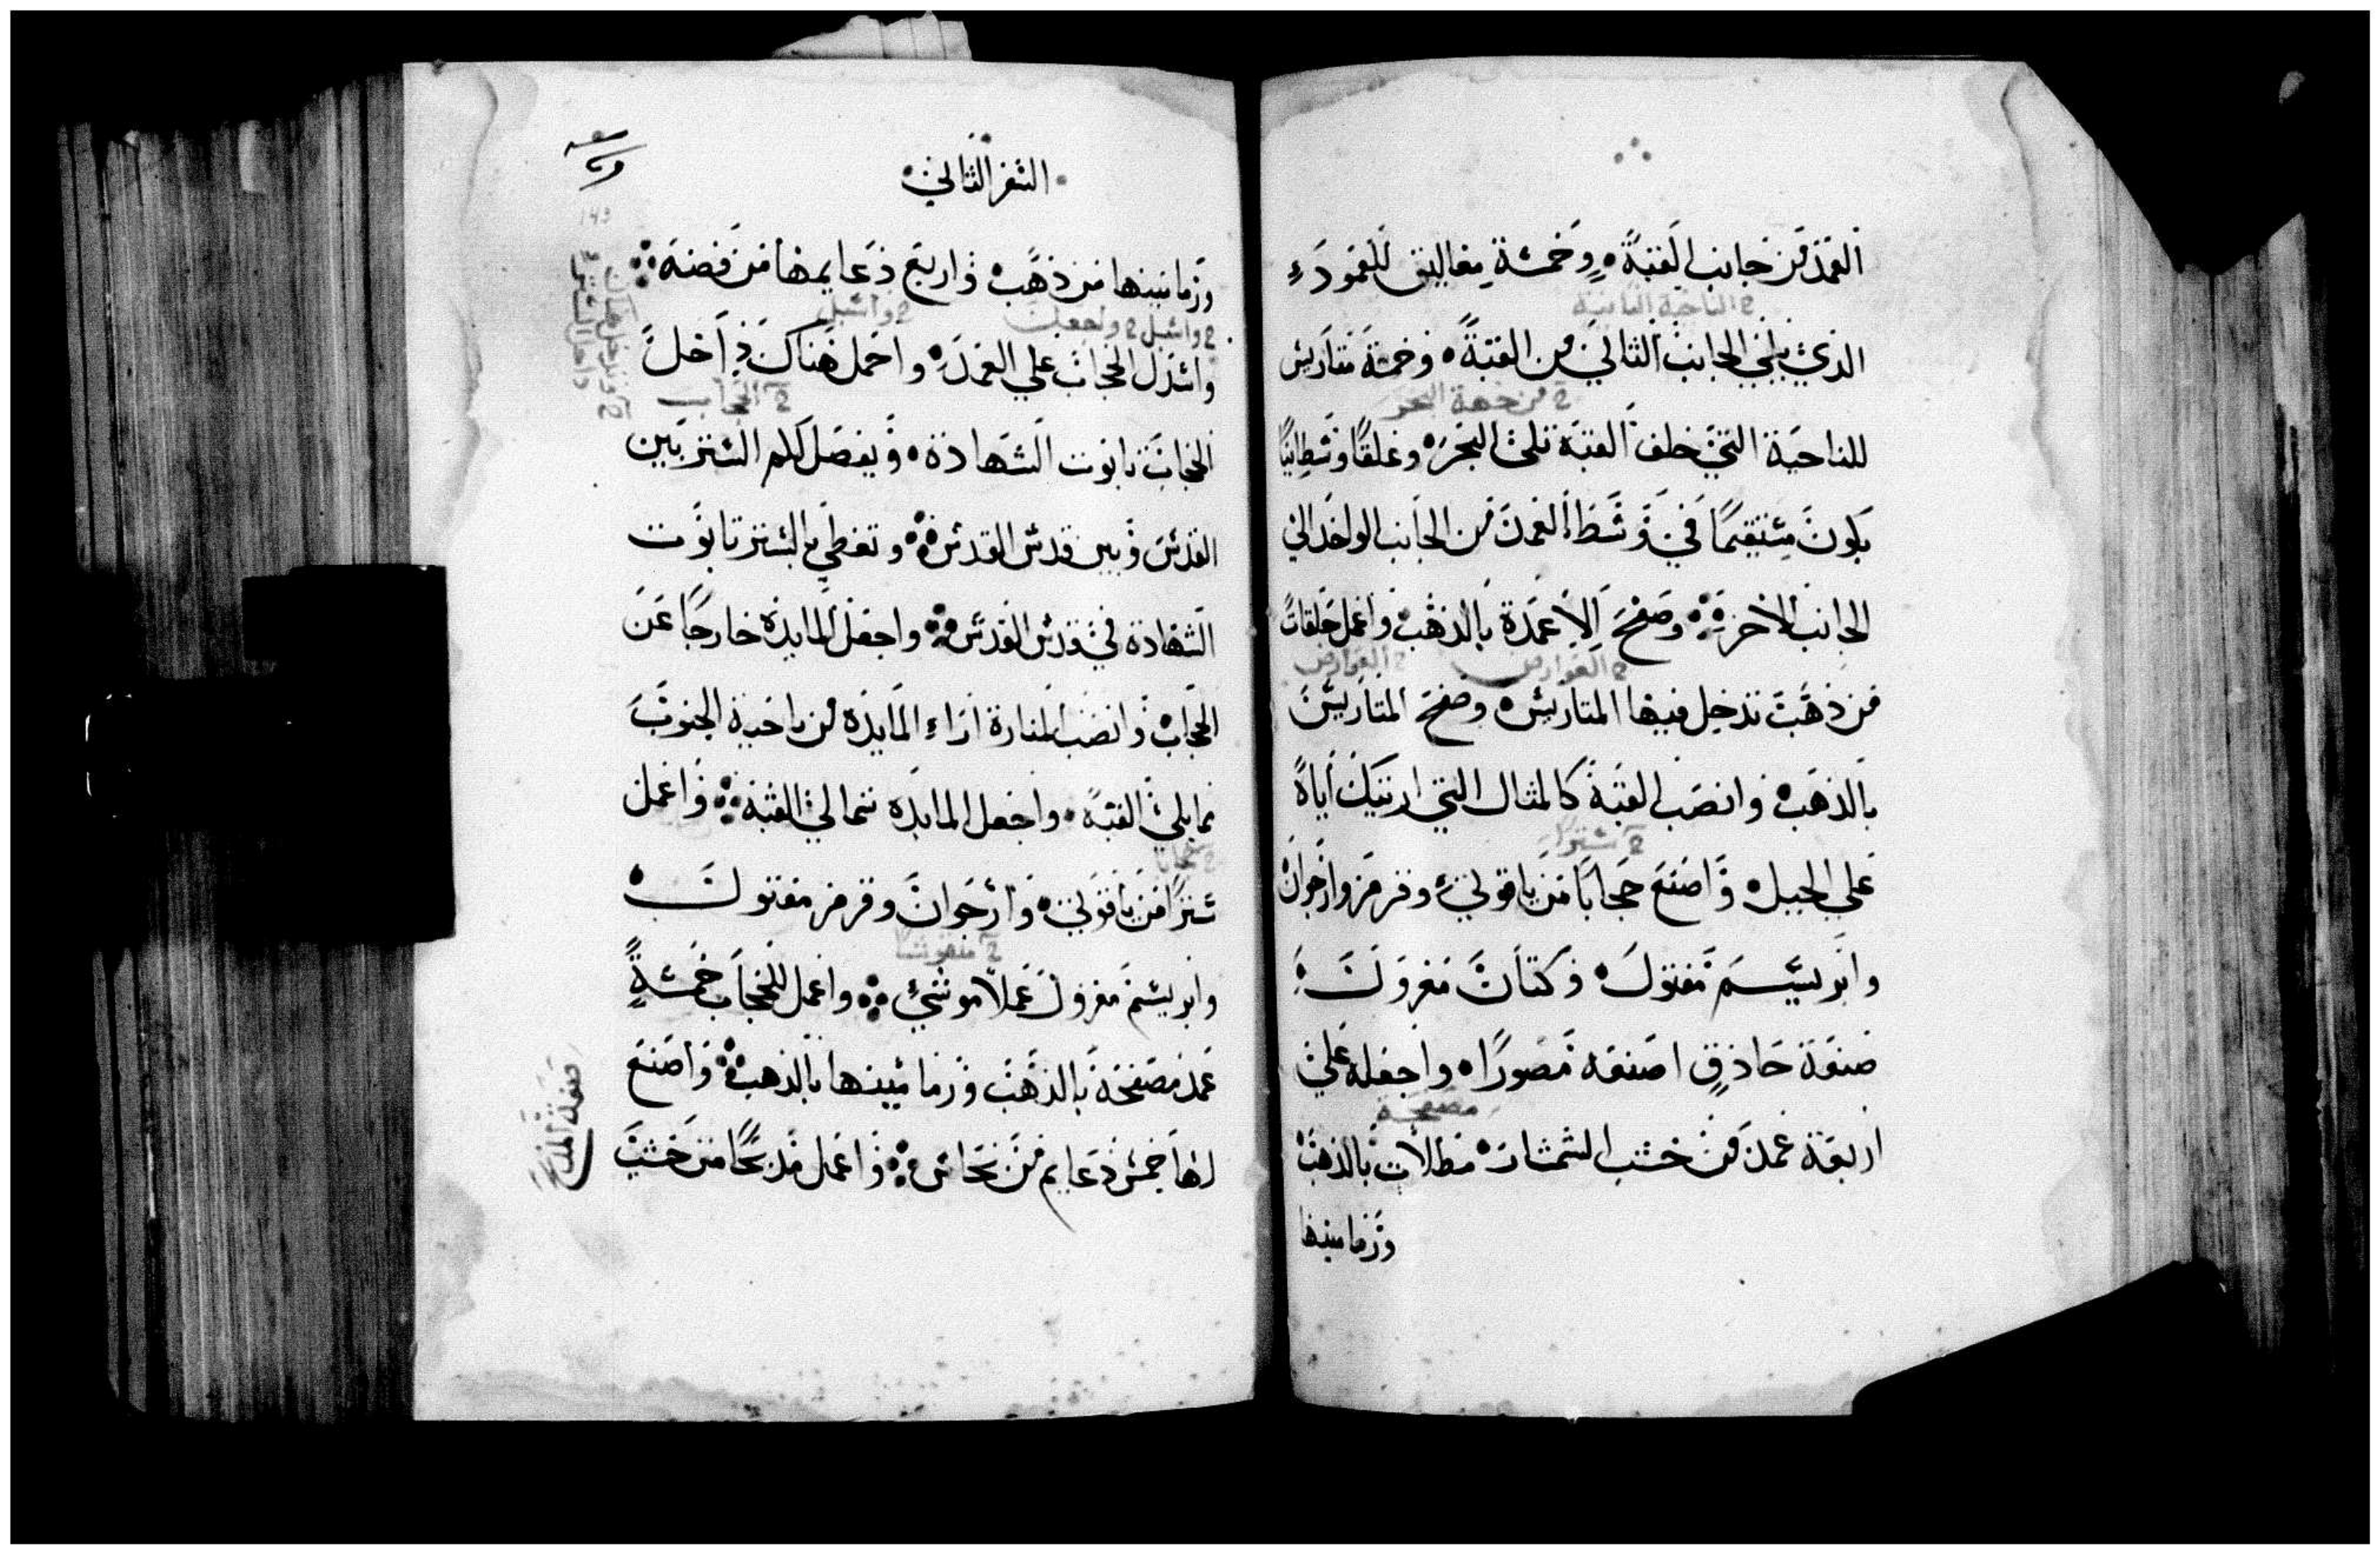 العمد من جانب القبة وخمسة مغاليق للعمود
الذي يلي الجانب الثاني من القبة وخمسة متاريس
للناحية التي خلف القبة تلي البحر وغلقًا وسطانيًا
يكون مستقيمًا في وسط العمد من الجانب الواحد الي
الجانب الاخر وصفح الاعمدة بالذهب واعمل حلقات
من ذهب تدخل فيها المتاريس وصفح المتاريس
بالذهب وانصب القبة كالمثال التي اريتك اياه
علي الجبل واصنع حجابًا من ياقوني وقرمز وارجوان
وابريسم مفتول وكتان مغزول
صنعة حاذق اصنعه مصورًا واجعله علي
اربعة عمد من خشب الشمشار مطلات بالذهب
ورمامينها
السفر الثاني
ورمامينها من ذهب واربع دعايمها من فضة
واسدل الحجاب علي العمد واحمل هناك داخل
الحجاب تابوت الشهادة ويفصل لكم الستر بين
القدس وبين قدس القدس وتغطي بالستر تابوت
الشهادة في قدس القدس واجعل المايدة خارجًا عن
الحجاب وانصب المنارة ازاء المايدة من ناحية الجنوب
مما يلي القبة واجعل المايده شمالي القبة واعمل
سترًا من ياقوني وارجوان وقرمز مفتول
وابريسم مغزول عملا موشي واعمل للحجاب خمسة
عمد مصفحة بالذهب ورمامينها بالذهب واصنع
لها خمس دعايم من نحاس واعمل مذبحًا من خشب
صنعة المذبح
2 الناحية الثانية
2 من جهة البحر
2 العوارض
2 العوارض
2 سترا
مصفحة
2 واسبل 2 واجعل
2 واسبل
2 الحجاب
2 حجابا
2 منقوشا